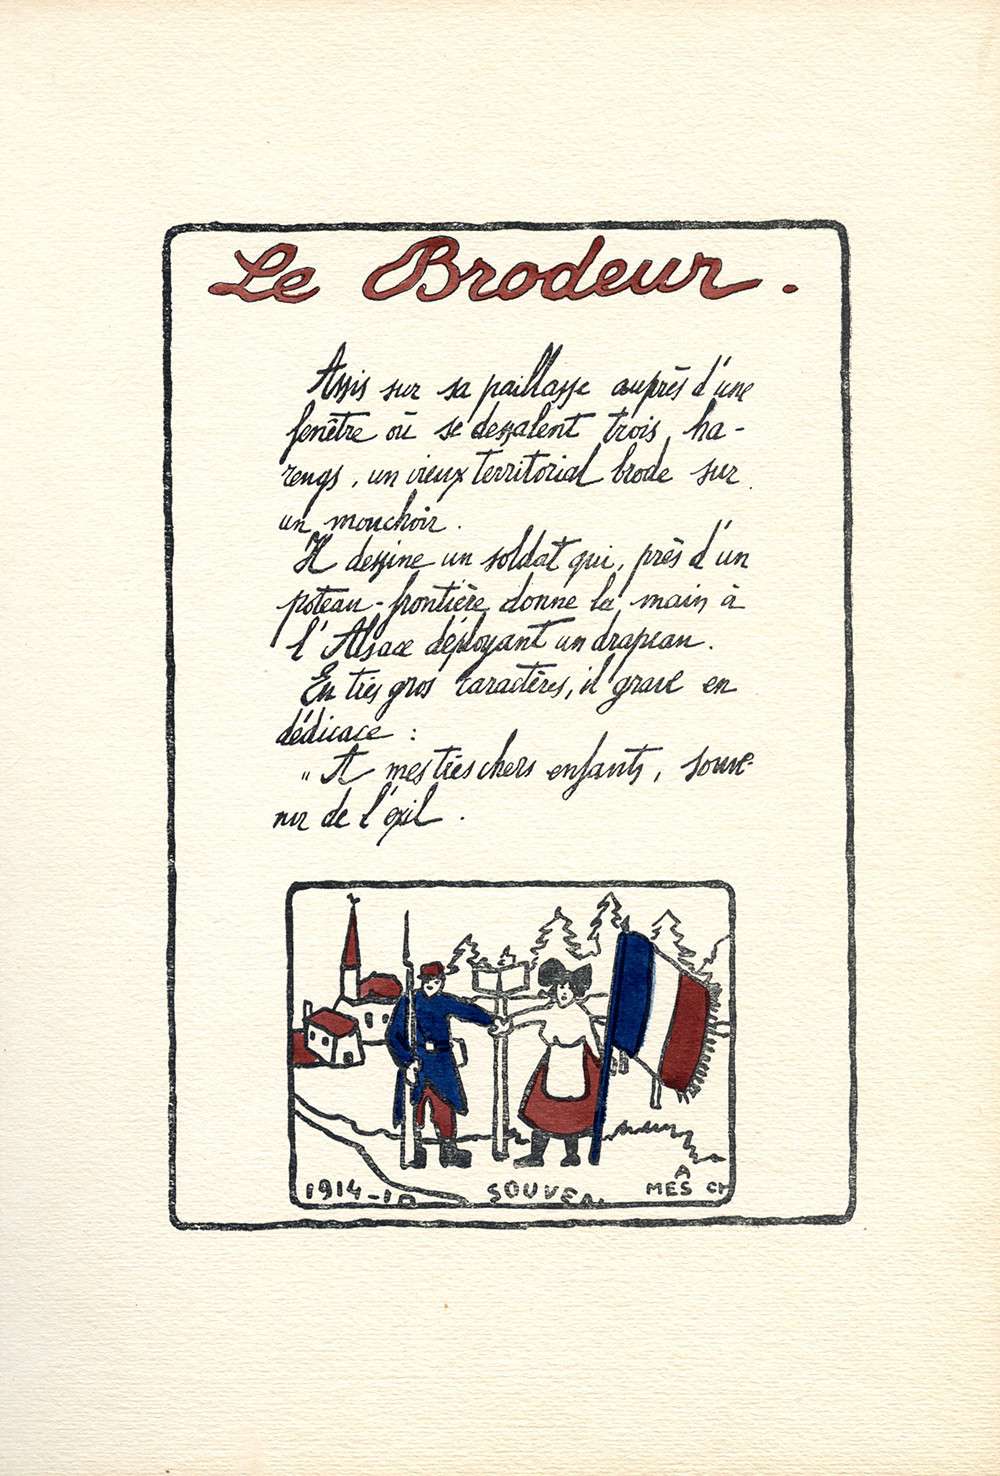 Le Brodeur.
Assis sur sa paillasse auprès d'une
fenêtre où se dessalent trois ha-
rengs, un vieux territorial brode sur
un mouchoir.
Il dessine un soldat qui, près d'un
poteau-frontière donne la main à
l'Alsace déployant un drapeau.
En très gros caractères, il grave en
dédicace :
"A mes très chers enfants, souve-
nir de l'exil.
1914-1
SOUVE
A
MES CH